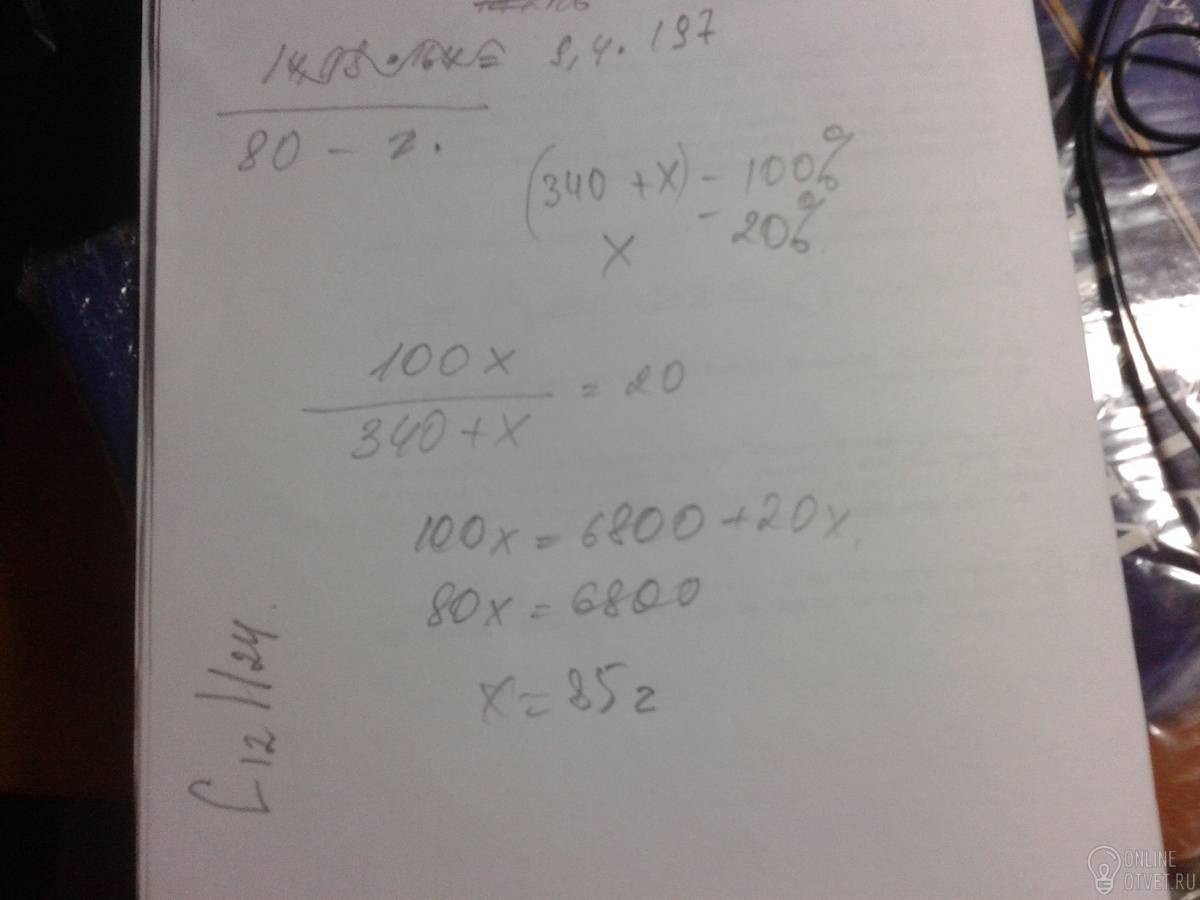 9,4 · 197
80 - г.
(340 + x) - 100%
x - 20%
100x
340 + x
= 20
100x = 6800 + 20x
80x = 6800
x = 85 г
C12 H24
ONLINE
OTVET.RU